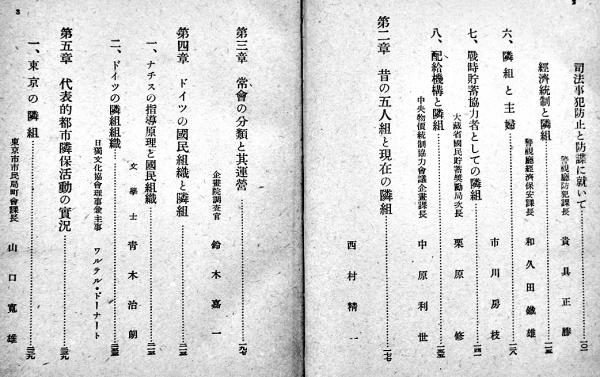 2
司法事犯防止と防諜に就いて
警視廳防犯課長 貴具正勝 一〇一
經濟統制と隣組
警視廳經濟保安課長 和久田鐵雄
六、隣組と主婦 市川房枝
七、戰時貯蓄協力者としての隣組
大藏省國民貯蓄奬勵局次長 栗原修
八、配給機構と隣組
中央物價統制協力會議企畫課長 中原利世
第二章 昔の五人組と現在の隣組
西村精一
3
第三章 常會の分類と其運營
企畫院調査官 鈴木嘉一
第四章 ドイツの國民組織と隣組
一、ナチスの指導原理と國民組織
文學士 青木治朗
二、ドイツの隣組組織
日獨文化協會理事兼主事 ワルテル・ドーナート
第五章 代表的都市隣保活動の實況
一、東京の隣組
東京市市民局町會課長 山口寛雄